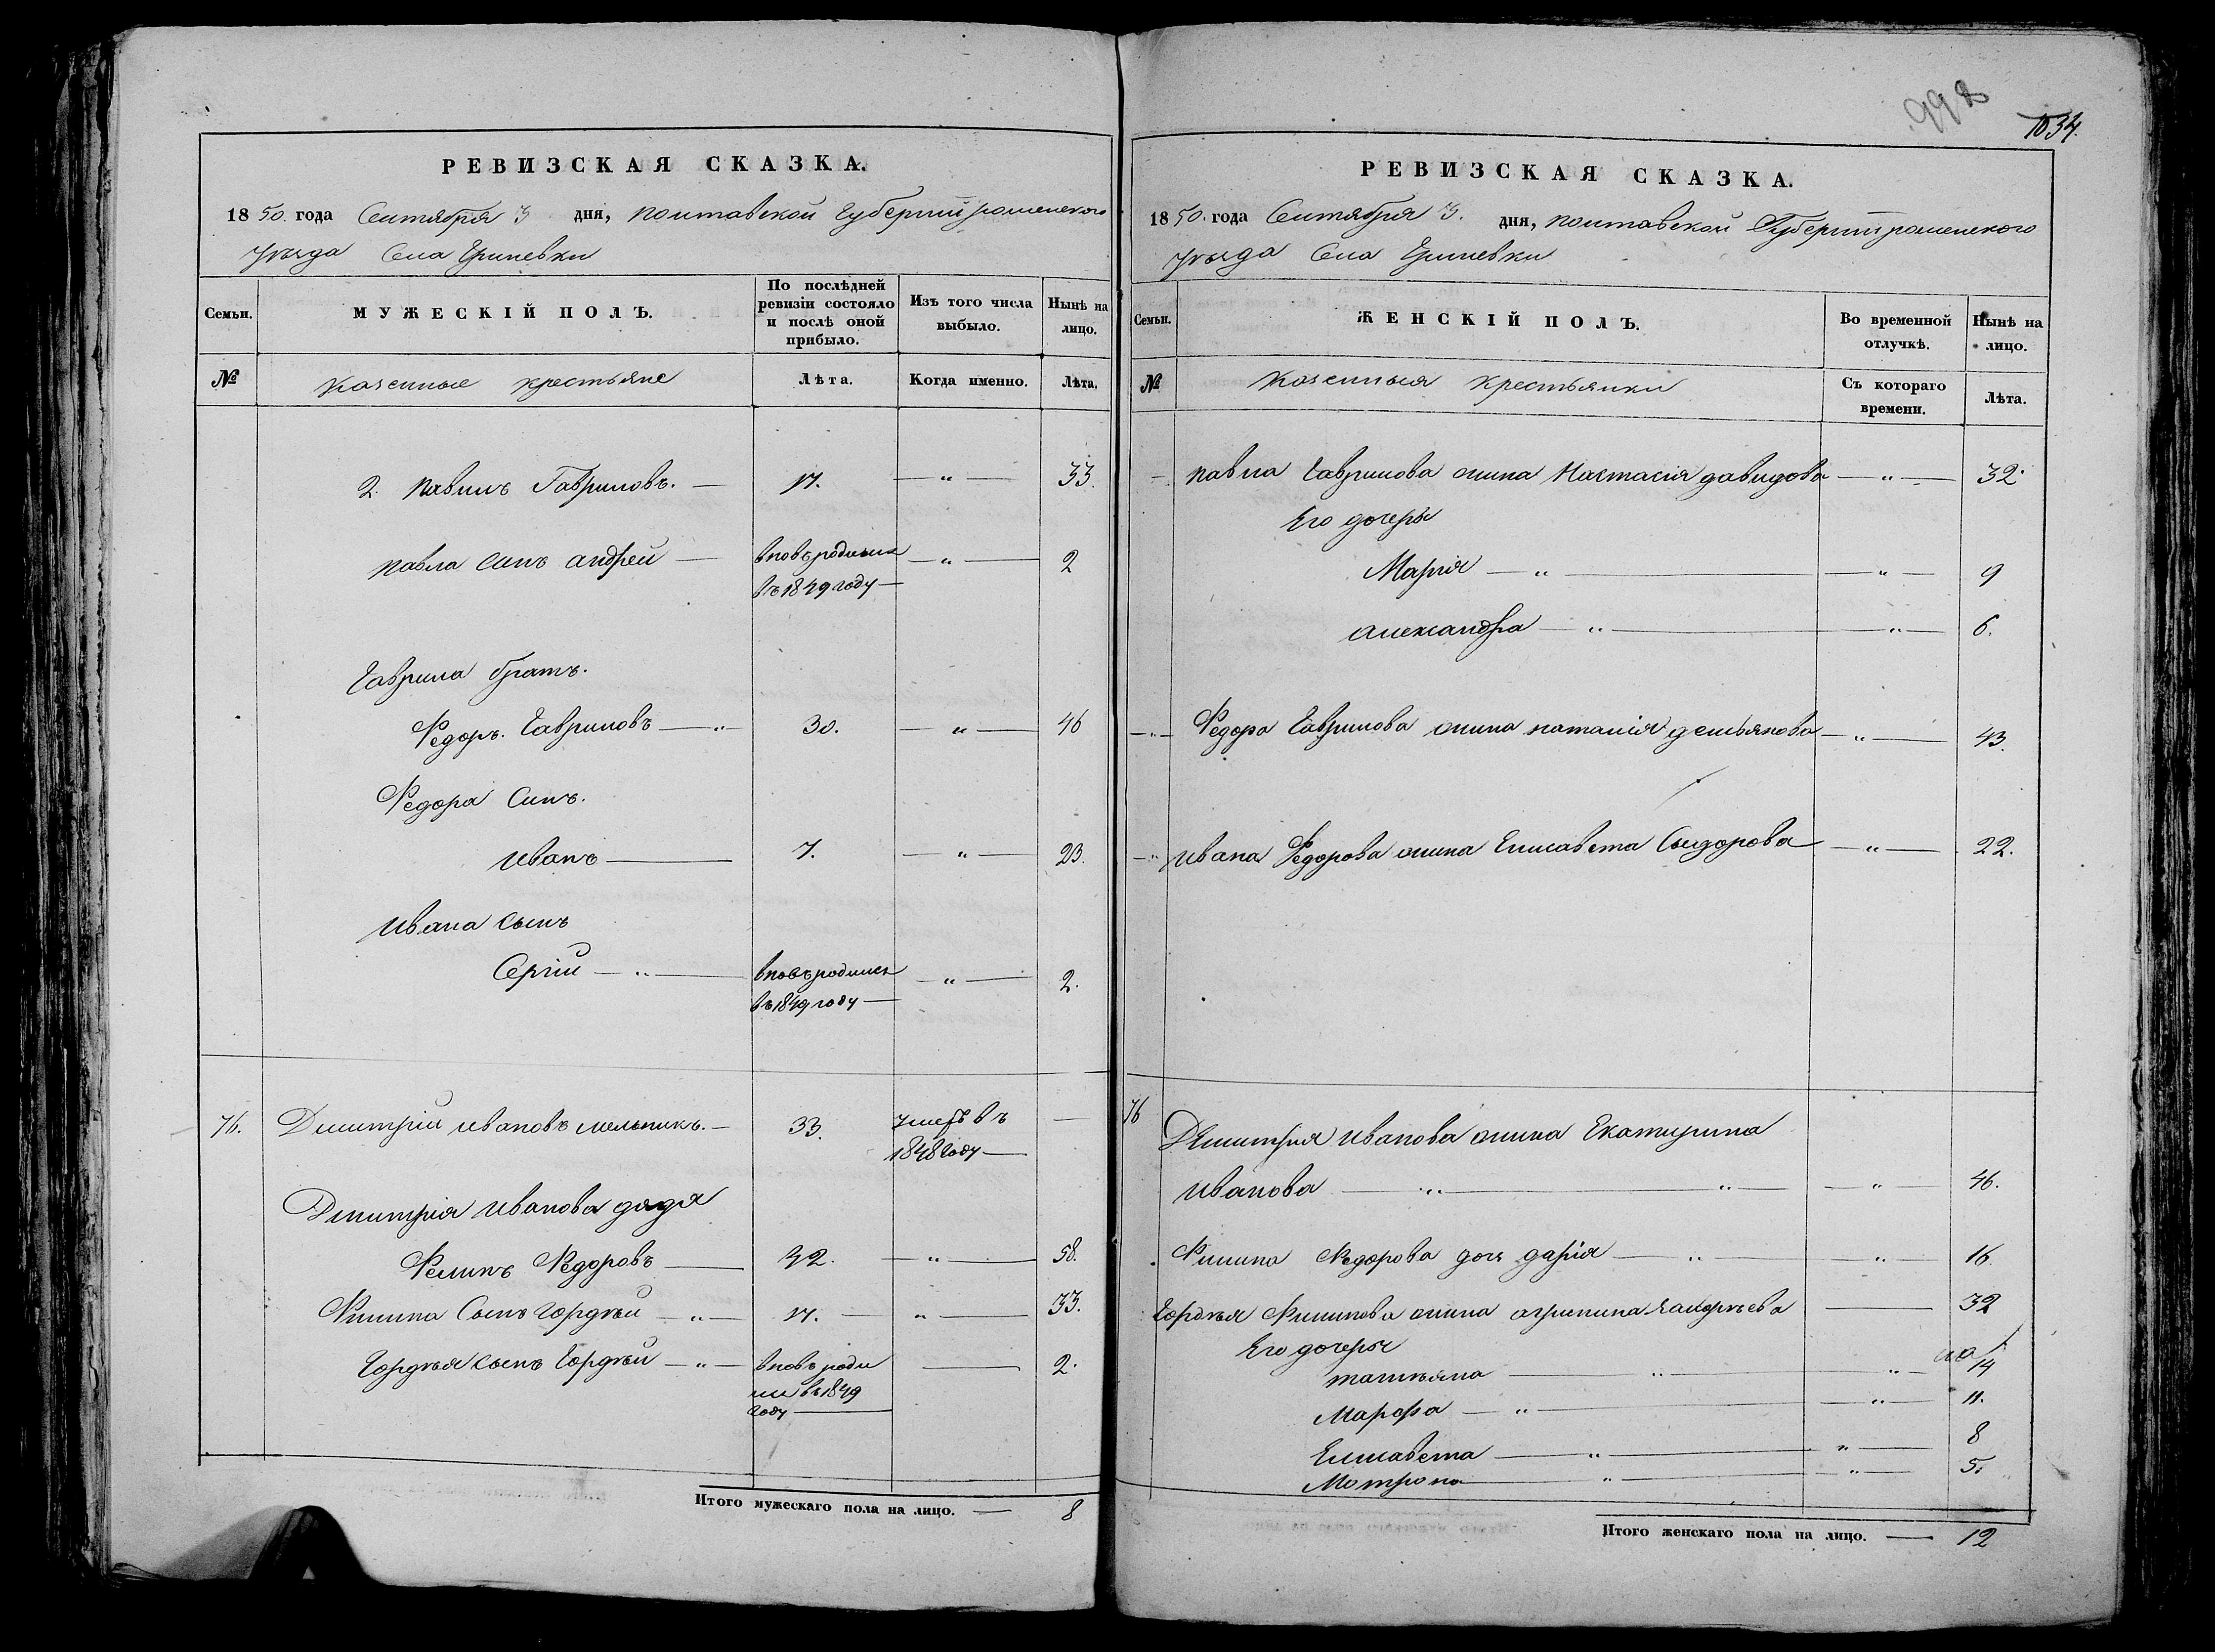 992
1034.
РЕВИЗСКАЯ СКАЗКА.
1850. года Сентября 3 дня, полтавской Губернии роменского
уезда Села Гриневки
Семьи.
МУЖЕСКІЙ ПОЛЪ.
По послѣдней ревизіи состояло и послѣ оной прибыло.
Изъ того числа выбыло.
Нынѣ на лицо.
№
казенные крестьяне
Лѣта.
Когда именно.
Лѣта.
2. павилъ Гавриловъ. — 17. — „ — 33.
павла синъ андрей — вновь родился — „ — 2
въ 1849 году —
Гаврила братъ.
Ѳедоръ. Гавриловъ — „ — 30. — „ — 46
Ѳедора Синъ.
иванъ — 7. — „ — 23.
ивана сынъ
Сергій — „ — вновь родился — „ — 2.
въ 1849 году —
76. Дмитрій ивановъ мельникъ. — 33. умеръ въ —
1848 году —
Дмитрія иванова дядя
Ѳелипъ Ѳедоровъ — 42. — „ — 58.
Ѳилипа Сынъ гордѣй — „ — 17. — „ — 33.
Гордѣя сынъ Гордѣй — „ — вновь роди — 2.
лся въ 1849
году —
Итого мужескаго пола на лицо. — 8
РЕВИЗСКАЯ СКАЗКА.
1850. года Сентября 3. дня, полтавской Губернии роменского
уезда Села Гриневки
Семьи.
ЖЕНСКІЙ ПОЛЪ.
Во временной отлучкѣ.
Нынѣ на лицо.
№
казенныя крестьянки
Съ котораго времени.
Лѣта.
— павла Гаврилова жина Настасія давидова — „ — 32.
Его дочеры
Марія — „ — „ — 9
александра — „ — „ — 6.
— „ — Ѳедора Гаврилова жина наталія демьянова — „ — 43.
— „ ивана Ѳедорова жина Елисавета Сидорова — „ — 22.
76 Дмитрия иванова жина Екатирина
иванова — „ — „ — „ — 46.
Ѳилипа Ѳедорова дочъ дарія — „ — „ — 16.
Гордѣя Ѳилипова жина агрипина — 32
Его дочеры
татияна — „ — „ — 14
Марфа — „ — „ — 11.
Елисавета — „ — „ — 8
Мотрона — „ — „ — 5.
Итого женскаго пола на лицо. — 12